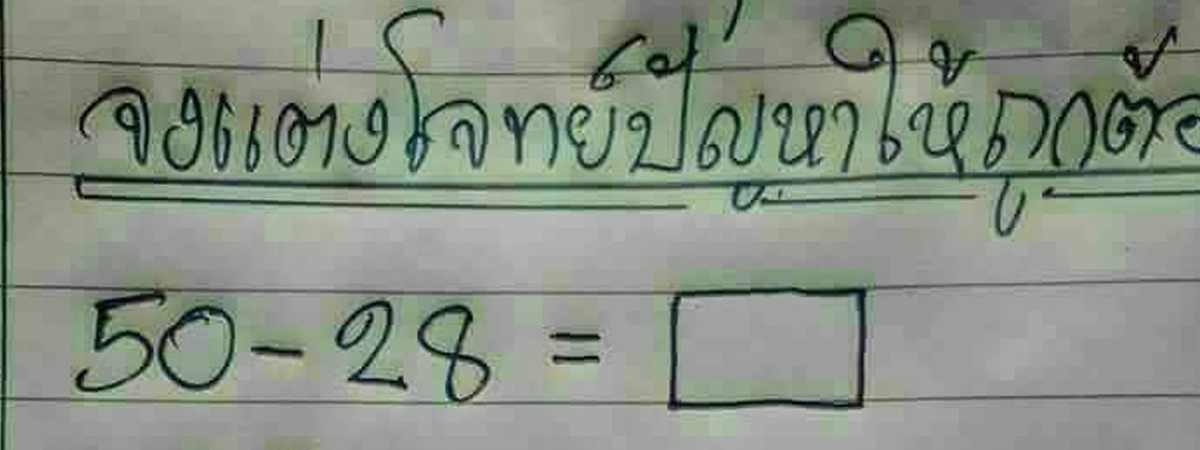 จงแต่งโจทย์ปัญหาให้ถูกต้อ
50 - 28 =